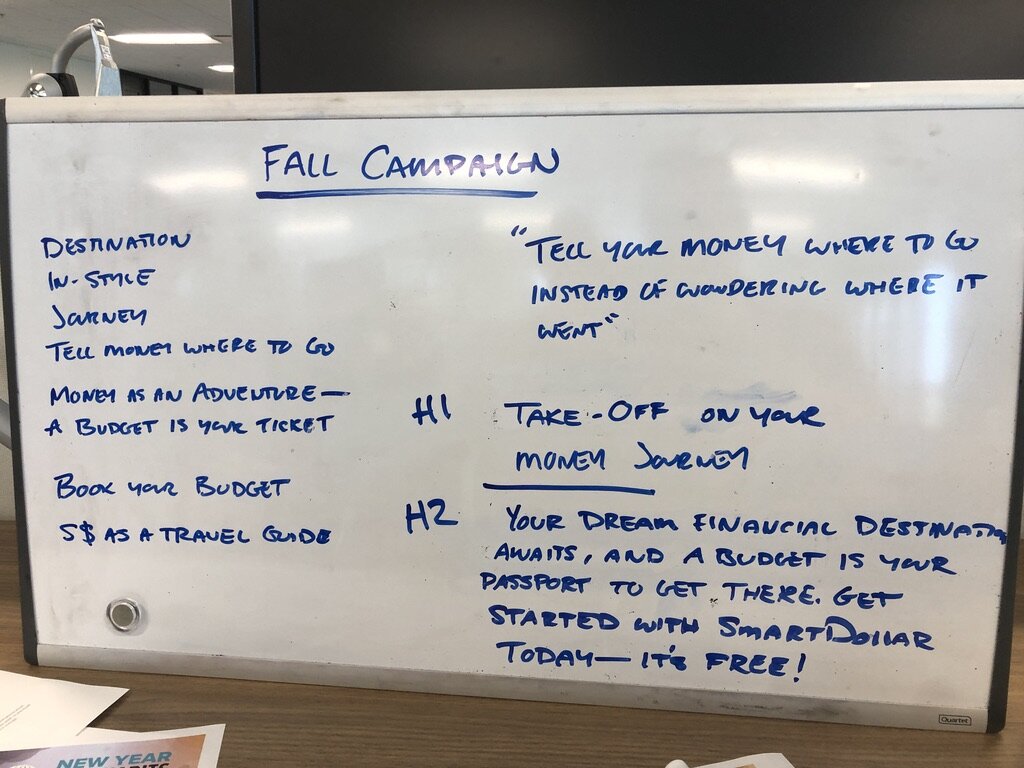 FALL CAMPAIGN
DESTINATION
IN-STYLE
JOURNEY
TELL MONEY WHERE TO GO
MONEY AS AN ADVENTURE—
A BUDGET IS YOUR TICKET
BOOK YOUR BUDGET
S$ AS A TRAVEL GUIDE
"TELL YOUR MONEY WHERE TO GO
INSTEAD OF WONDERING WHERE IT
WENT"
H1 TAKE-OFF ON YOUR
MONEY JOURNEY
H2 YOUR DREAM FINANCIAL DESTINATION
AWAITS, AND A BUDGET IS YOUR
PASSPORT TO GET THERE. GET
STARTED WITH SMARTDOLLAR
TODAY—IT'S FREE!
Quartet
NEW YEAR